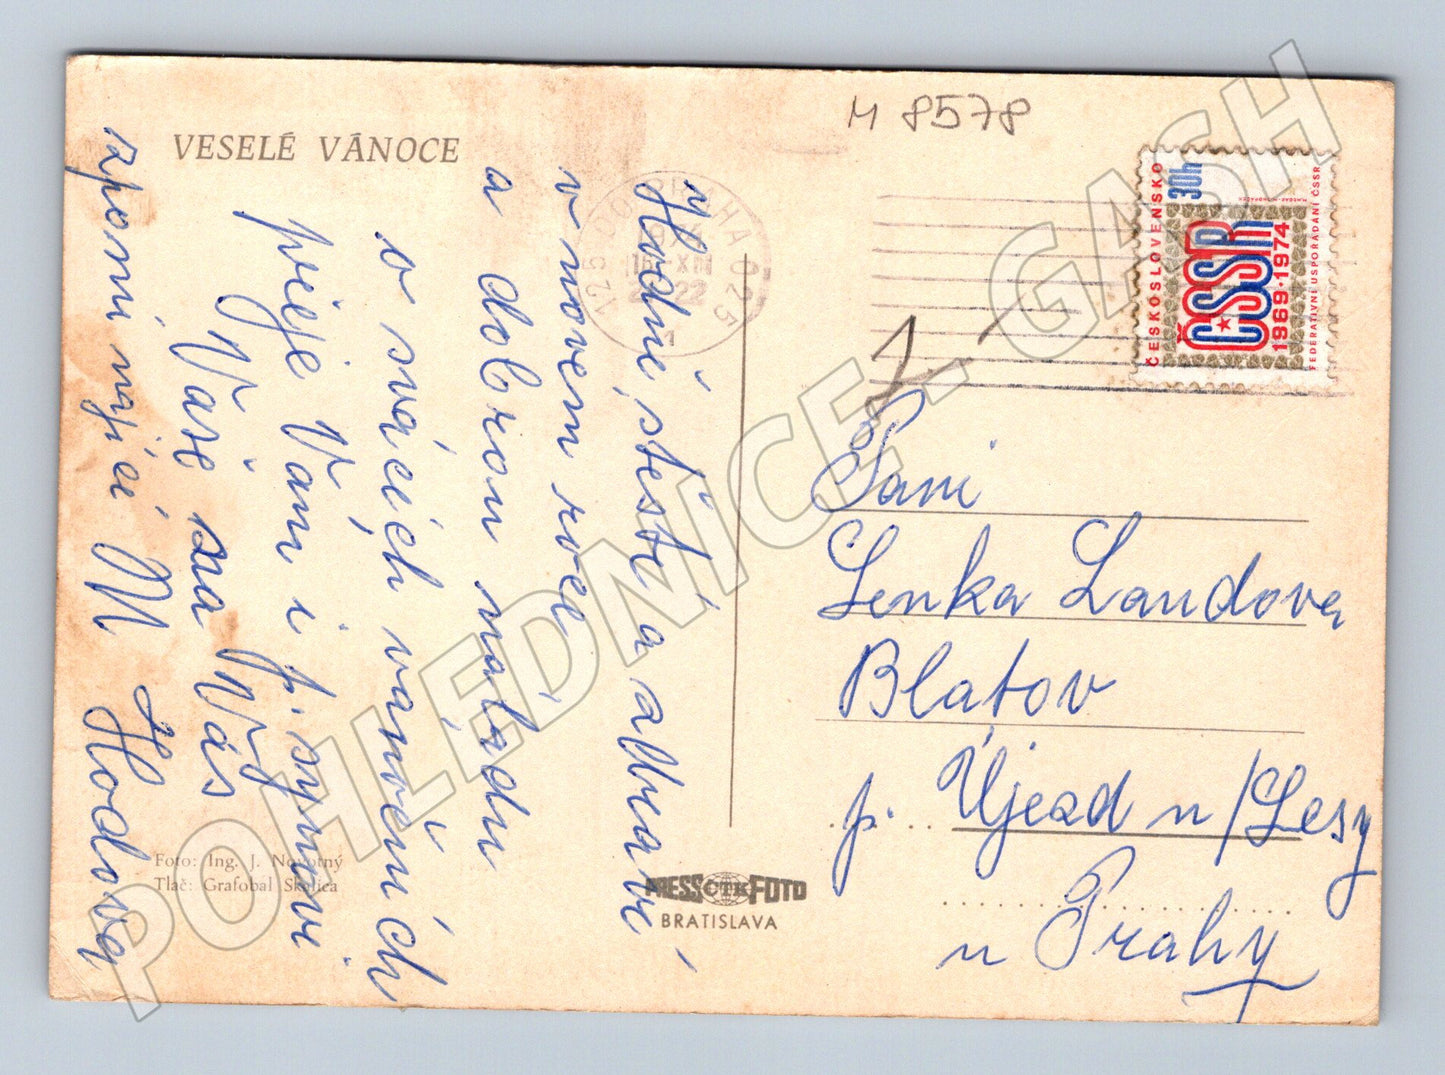 M 8578
VESELÉ VÁNOCE
Hodně štěstí a zdraví
v novém roce
a dobrou náladu
o svátcích vánočních
přeje Vám i p. synovi
Vaše na Vás
vzpomínající M Hodová
PRAHA 025
ČESKOSLOVENSKO
30h
ČSSR
1969·1974
FEDERATIVNÍ USPOŘÁDÁNÍ ČSSR
Paní
Lenka Landova
Blatov
p. Újezd u/Lesy
u Prahy
Foto: Ing. J. Novotný
Tlač: Grafobal Skalica
PRESS ČTK FOTO
BRATISLAVA
POHLEDNICE - GASH